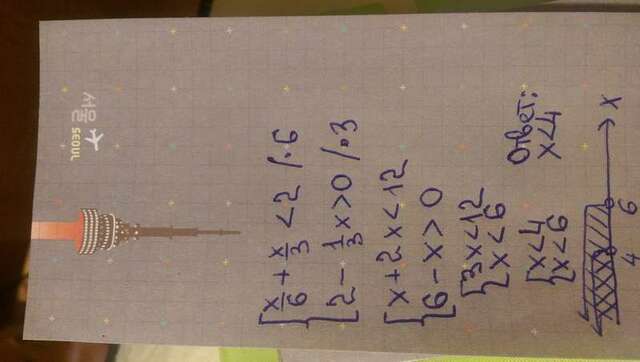 서울
SEOUL
x/6 + x/3 < 2 /·6
2 - 1/3 x > 0 /·3
x + 2x < 12
6 - x > 0
3x < 12
x < 6
x < 4
x < 6
Ответ:
x < 4
4 6 x